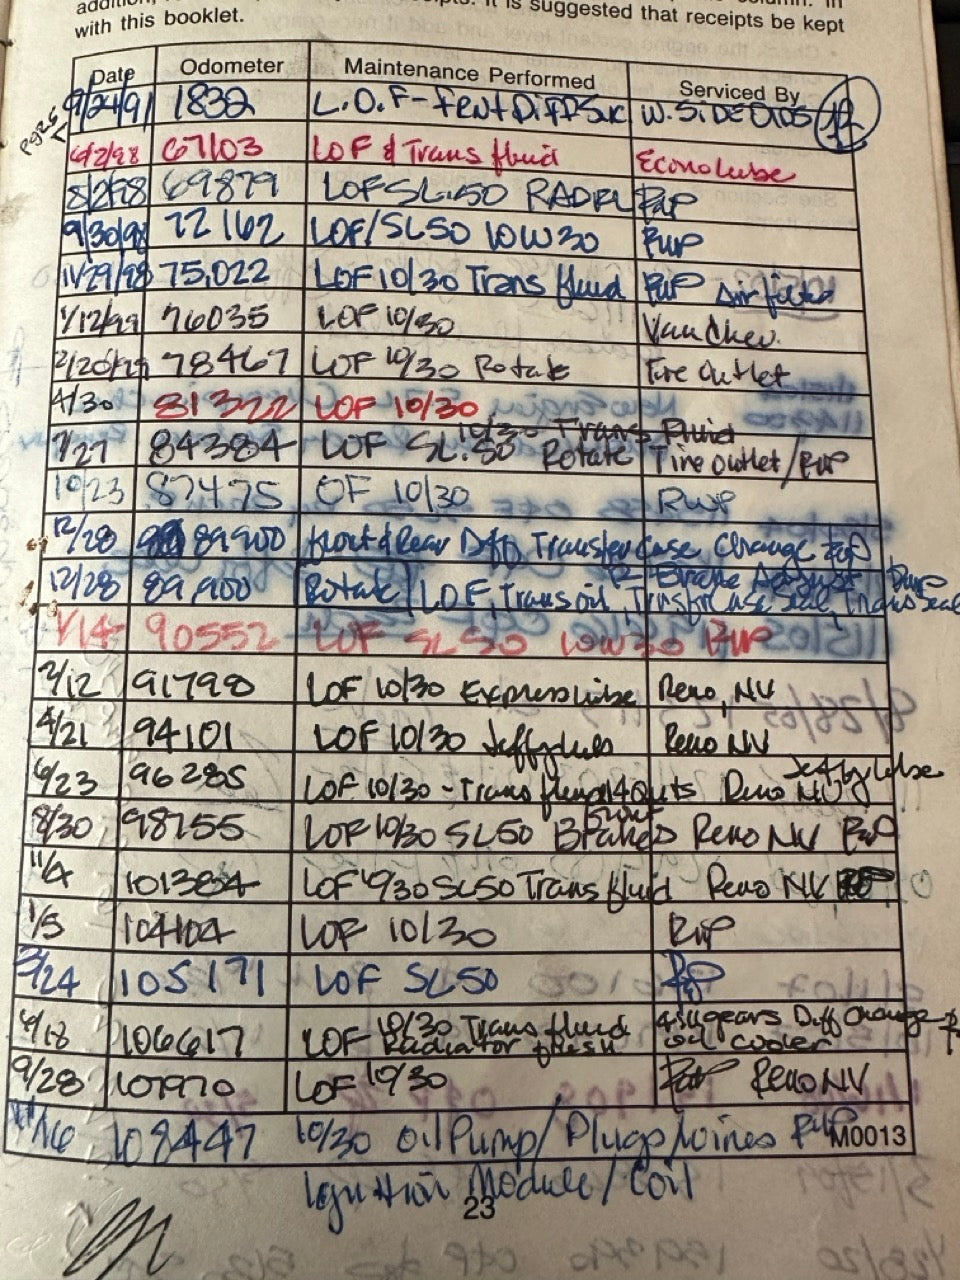 column. In
receipts. It is suggested that receipts be kept
with this booklet.
Date Odometer Maintenance Performed Serviced By
pg25
9/24/91 1832 L.O.F - Frnt Diff Suc W. SIDE OLDS
6/2/98 67103 LOF & Trans fluid Econolube
8/2/98 69879 LOF SL50 RWP
9/30/98 72162 LOF/SL50 10W30 RWP
11/29/98 75,022 LOF 10/30 Trans fluid RWP Air filter
1/12/99 76035 LOF 10/30 Van Chev.
2/20/99 78467 LOF 10/30 Rotate Tire Outlet
4/30 81322 LOF 10/30
7/27 84384 LOF SL.50 10/30 Trans Fluid Rotate Tire Outlet/RWP
10/23 87475 OF 10/30 RWP
12/28 89900 front & Rear Diff Transfer Case Change RWP
12/28 89,900 Rotate/LOF, Trans oil, R-Brake Adjust Transfer Case Seal, Trans Seal RWP
1/14 90552 LOF SL50 10W30 RWP
2/12 91798 LOF 10/30 Express Lube Reno, NV
4/21 94101 LOF 10/30 Reno NV
6/23 96285 LOF 10/30 - Trans 14 Quts Reno NV Jeffy Lube
8/30 98755 LOF 10/30 SL50 Front Brakes Reno NV RWP
11/4 101384 LOF 10/30 SL50 Trans fluid Reno NV
1/5 104104 LOF 10/30 RWP
3/24 105171 LOF SL50 RWP
6/18 106617 LOF 10/30 Trans fluid Radiator flush 4:11 gears Diff Change oil cooler
9/28 107970 LOF 10/30 RWP Reno NV
11/16 108447 10/30 Oil Pump/Plugs/Wires RWP
M0013
Ignition Module/Coil
23